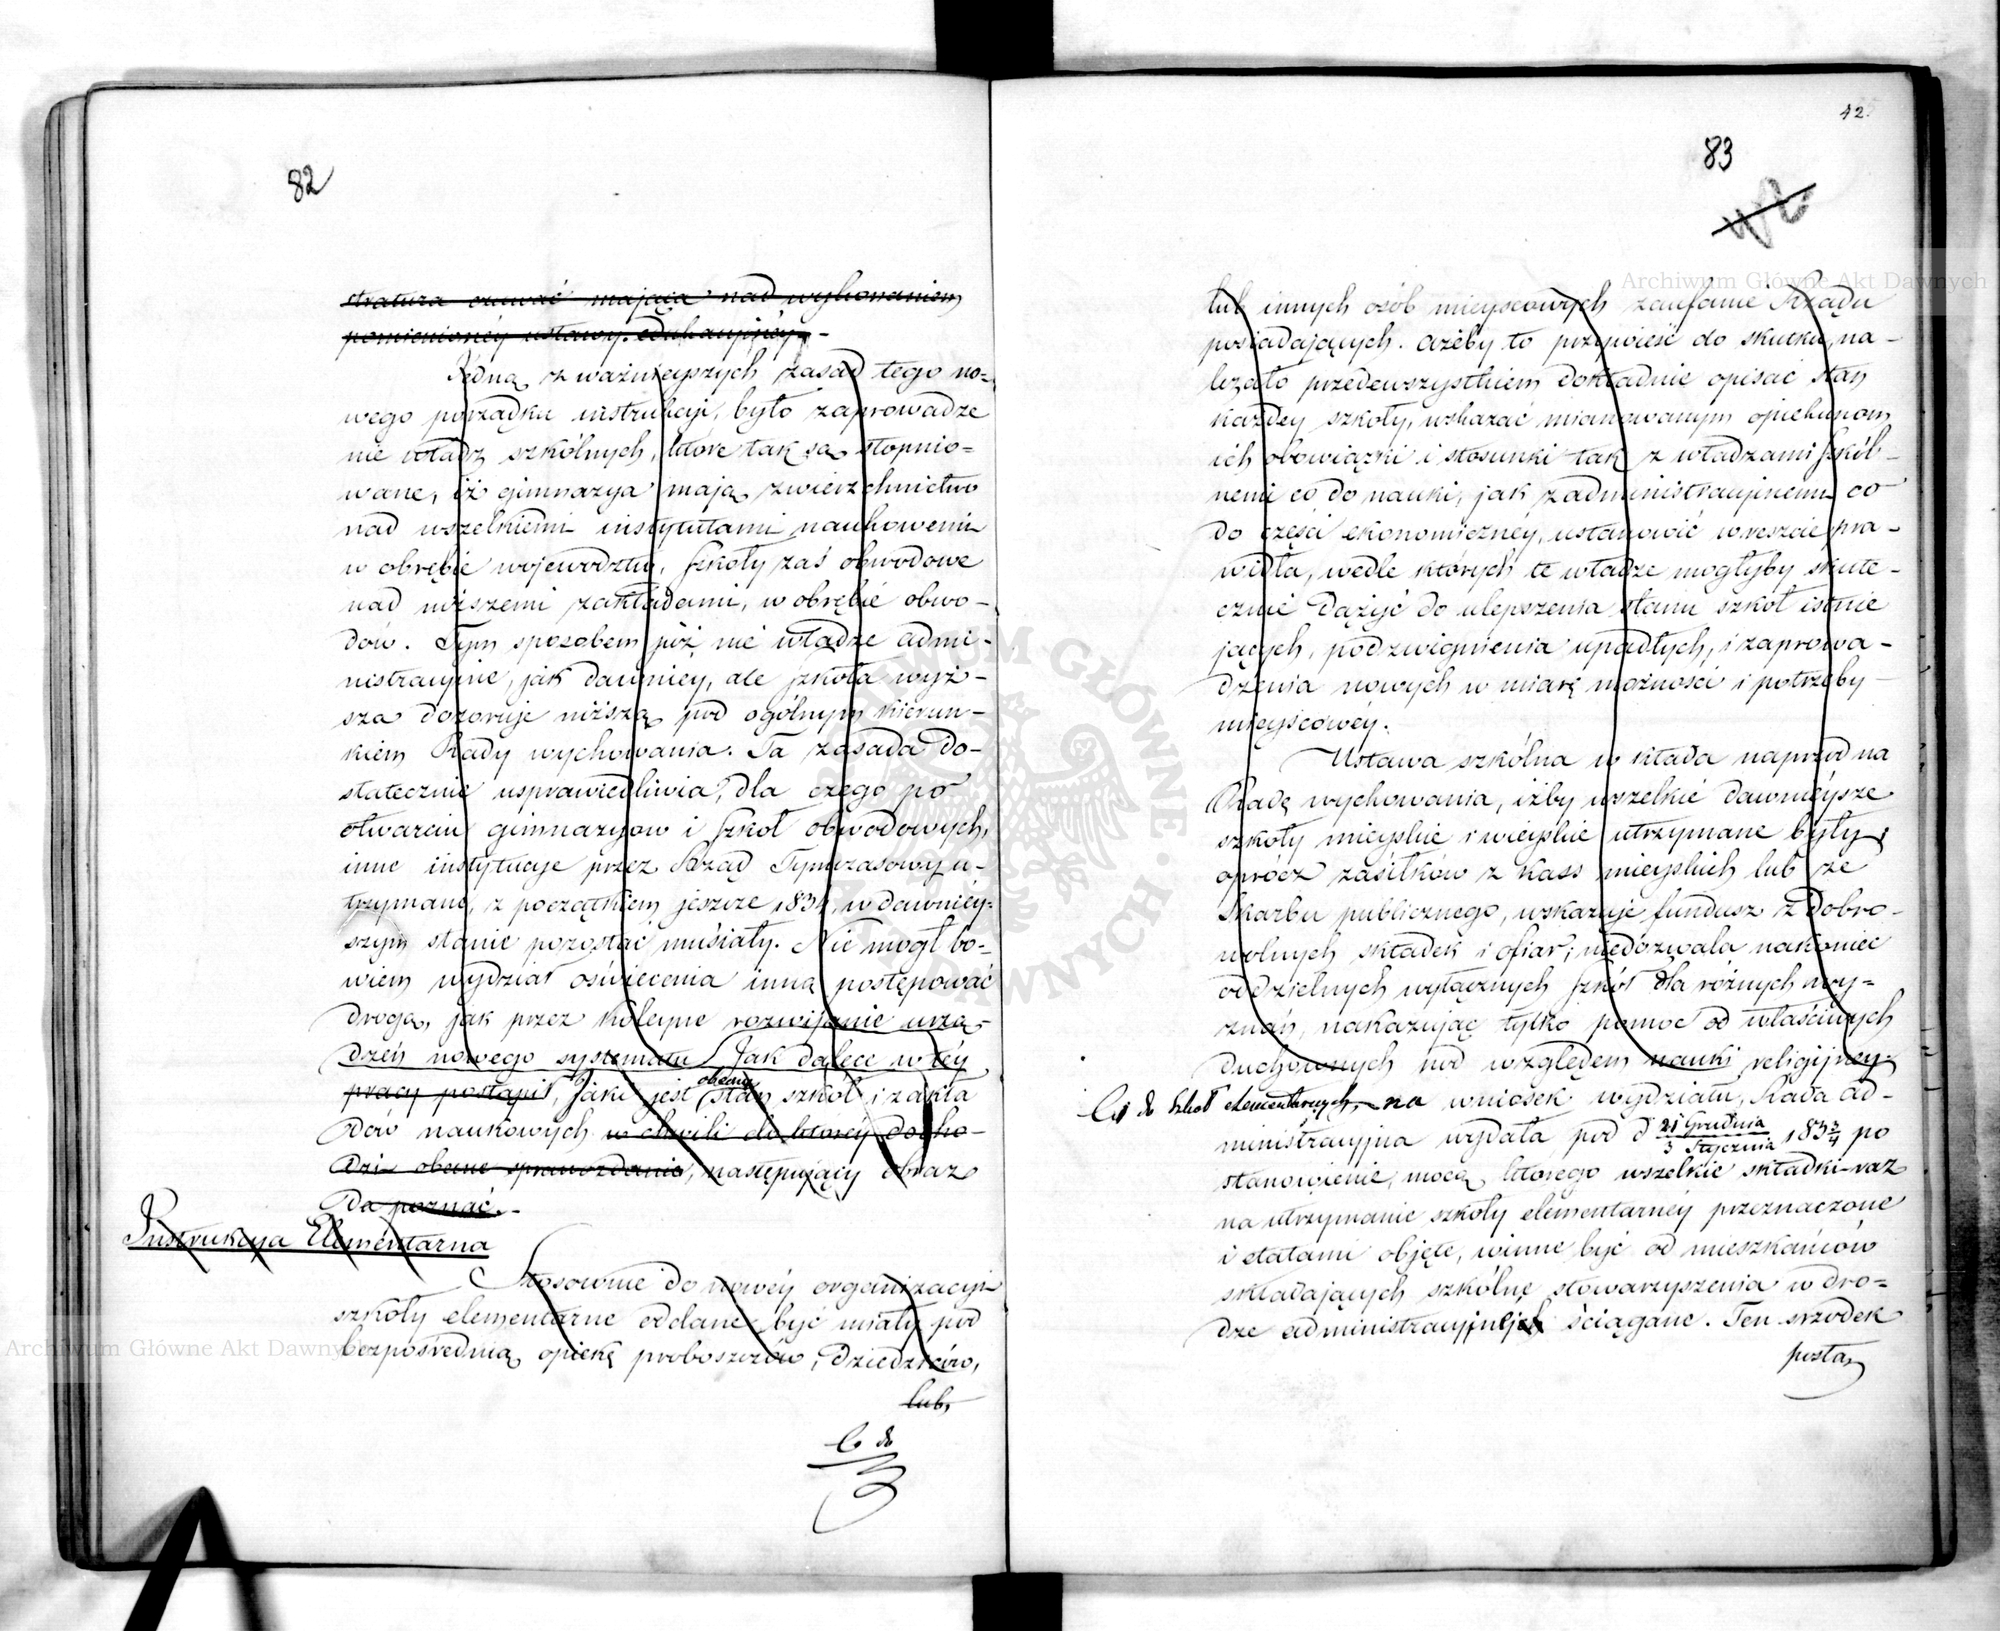 82
stratura czuwać mająca nad wykonaniem
pomienionéy ustawy edukacyjnéy. –
Jedną z ważnieyszych zasad tego no-
wego porządku instrukcyi, było zaprowadze
nie władz szkólnych, które tak są stopnio-
wane, iż gimnazya mają zwierzchnictwo
nad wszelkiemi instytutami naukowemi
w obrębie województw, Szkoły zaś obwodowe
nad niższemi zakładami, w obrębie obwo-
dów. Tym sposobem już nie władze admi-
nistracyjne, jak dawniéy, ale szkoła wyż-
sza dozoruje niższą pod ogólnym kierun-
kiem Rady wychowania. Ta zasada do-
statecznie usprawiedliwia, dla czego po
otwarciu gimnazyow i Szkoł obwodowych,
inne instytucye przez Rząd Tymczasowy u-
trzymane, z początkiem jeszcze 1834, w dawniéy-
szym stanie pozostać musiały. Nie mogł bo-
wiem wydział oświecenia inną postępować
drogą, jak przez koleyne rozwijanie urzą-
dzeń nowego systematu. Jak dalece w téy
pracy postąpił, Jaki jest obecny stan szkoł i zakła
dów naukowych w chwili do któréy docho-
dzi obecne sprawozdanie, następujący obraz
da poznać. –
Instrukcya Elementarna
Stosownie do nowéy organizacyi
szkoły elementarne oddane być miały pod
bezpośrednią opiekę proboszczów, dziedziców,
lub,
C. d.
42.
83
lub innych osób mieyscowych zaufanie Rządu
posiadających. ażeby to przywieść do skutku, na-
leżało przedewszystkiem dokładnie opisać stan
każdey szkoły, wskazać mianowanym opiekunom
ich obowiązki i stosunki tak z władzami szkól-
nemi co do nauki, jak z administracyjnemi co
do części ekonomiczney, ustanowić wreszcie pra-
widła, wedle których te władze mogłyby skute-
cznie dążyć do ulepszenia stanu szkoł istnie
jących, podzwignienia upadłych, i zaprowa-
dzenia nowych w miarę możności i potrzeby
mieyscowéy.
Ustawa szkólna wkłada naprzód na
Radę wychowania, iżby wszelkie dawniéysze
szkoły mieyskie i wieyskie utrzymane były,
oprócz zasiłków z kass mieyskich lub ze
Skarbu publicznego, wskazuje fundusz z dobro-
wolnych składek i ofiar; niedozwala nakoniec
oddzielnych wyłącznych szkół dla różnych wy-
znań, nakazując tylko pomoc od właściwych
duchownych pod względem nauki religijney.
Co do Szkoł elementarnych, – na wniosek wydziału, Rada ad-
ministracyjna wydała pod d 21 Grudnia / 3 Stycznia 183 3/4 po
stanowienie, mocą którego wszelkie składki raz
na utrzymanie szkoły elementarnéy przeznaczone
i etatami objęte, winne być od mieszkańców
składających szkólne stowarzyszenia w dro-
dze administracyjnéj ściągane. Ten srzodek
posta,
Archiwum Główne Akt Dawnych
Archiwum Główne Akt Dawnych
ARCHIWUM GŁÓWNE AKT DAWNYCH